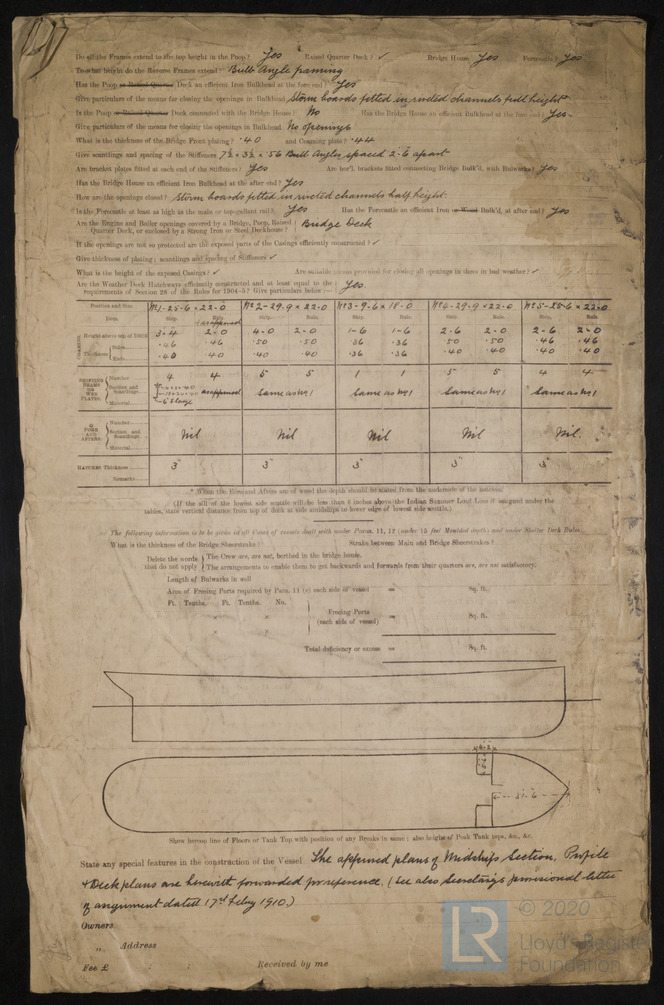 Do all the Frames extend to the top height in the Poop? Yes Raised Quarter Deck? ✓ Bridge House Yes Forecastle? Yes
To what height do the Reverse Frames extend? Bulb Angle framing
Has the Poop or Raised Quarter Deck an efficient Iron Bulkhead at the fore end? Yes
Give particulars of the means for closing the openings in Bulkhead Storm boards fitted in riveted channels full height
Is the Poop or Raised Quarter Deck connected with the Bridge House? No Has the Bridge House an efficient Bulkhead at the fore end? Yes.
Give particulars of the means for closing the openings in Bulkhead No openings
What is the thickness of the Bridge Front plating? .40 and Coaming plate? .44
Give scantlings and spacing of the Stiffeners 7½ × 3½ × .56 Bulb Angles spaced 2-6 apart
Are bracket plates fitted at each end of the Stiffeners? Yes Are hor'l. brackets fitted connecting Bridge Bulk'd, with Bulwarks? Yes
Has the Bridge House an efficient Iron Bulkhead at the after end? Yes
How are the openings closed? Storm boards fitted in riveted channels half height.
Is the Forecastle at least as high as the main or top-gallant rail? Yes Has the Forecastle an efficient Iron or Wood Bulk'd, at after end? Yes
Are the Engine and Boiler openings covered by a Bridge, Poop, Raised Quarter Deck, or enclosed by a Strong Iron or Steel Deckhouse? Bridge Deck
If the openings are not so protected are the exposed parts of the Casings efficiently constructed? ✓
Give thickness of plating; scantlings and spacing of Stiffeners ✓
What is the height of the exposed Casings? ✓ Are suitable means provided for closing all openings in them in bad weather? ✓
Are the Weather Deck Hatchways efficiently constructed and at least equal to the requirements of Section 26 of the Rules for 1904-5? Give particulars below:— Yes.
Position and Size. No 1-25-6 × 22-0 No 2-29-9 × 22-0 No 3-9-6 × 18-0 No 4-29-9 × 22-0 No 5-25-6 × 22-0
Item. Ship. Rule. Ship. Rule. Ship. Rule. Ship. Rule. Ship. Rule.
as approved
COAMING. Height above top of Deck 3-4 2-0 4-0 2-0 1-6 1-6 2-6 2-0 2-6 2-0
Thickness Sides .46 .46 .50 .50 .36 .36 .50 .50 .46 .46
Ends .40 .40 .40 .40 .36 .36 .40 .40 .40 .40
SHIFTING BEAMS OR WEB PLATES. Number 4 4 5 5 1 1 5 5 4 4
Section and Scantlings as approved Same as No 1 Same as No 1 Same as No 1 Same as No 1
Material
FORE AND AFTERS. Number Nil Nil Nil Nil Nil.
Section and Scantlings
Material
HATCHES Thickness 3" 3" 3" 3" 3"
Remarks
* When the Fore and Afters are of wood the depth should be stated from the underside of the hatches.
(If the sill of the lowest side scuttle will be less than 6 inches above the Indian Summer Load Line if assigned under the
tables, state vertical distance from top of deck at side amidships to lower edge of lowest side scuttle.)
The following information is to be given in all cases of vessels dealt with under Paras. 11, 12 (under 15 feet Moulded depth) and under Shelter Deck Rules
What is the thickness of the Bridge Sheerstrake? Strake between Main and Bridge Sheerstrakes?
Delete the words that do not apply The Crew are, are not, berthed in the bridge house.
The arrangements to enable them to get backwards and forwards from their quarters are, are not satisfactory.
Length of Bulwarks in well
Area of Freeing Ports required by Para. 11 (e) each side of vessel = Sq. ft.
Ft. Tenths. Ft. Tenths. No.
× × Freeing Ports (each side of vessel) = Sq. ft.
× ×
Total deficiency or excess = Sq. ft.
Show hereon line of Floors or Tank Top with position of any Breaks in same; also height of Peak Tank tops, &c., &c.
State any special features in the construction of the Vessel. The approved plans of Midship Section, Profile
& Deck plans are herewith forwarded for reference. (See also Secretary's provisional letter
of assignment dated 17th Febry 1910.)
Owners
„ Address
Fee £ : : Received by me
LR © 2020
Lloyd's Register
Foundation